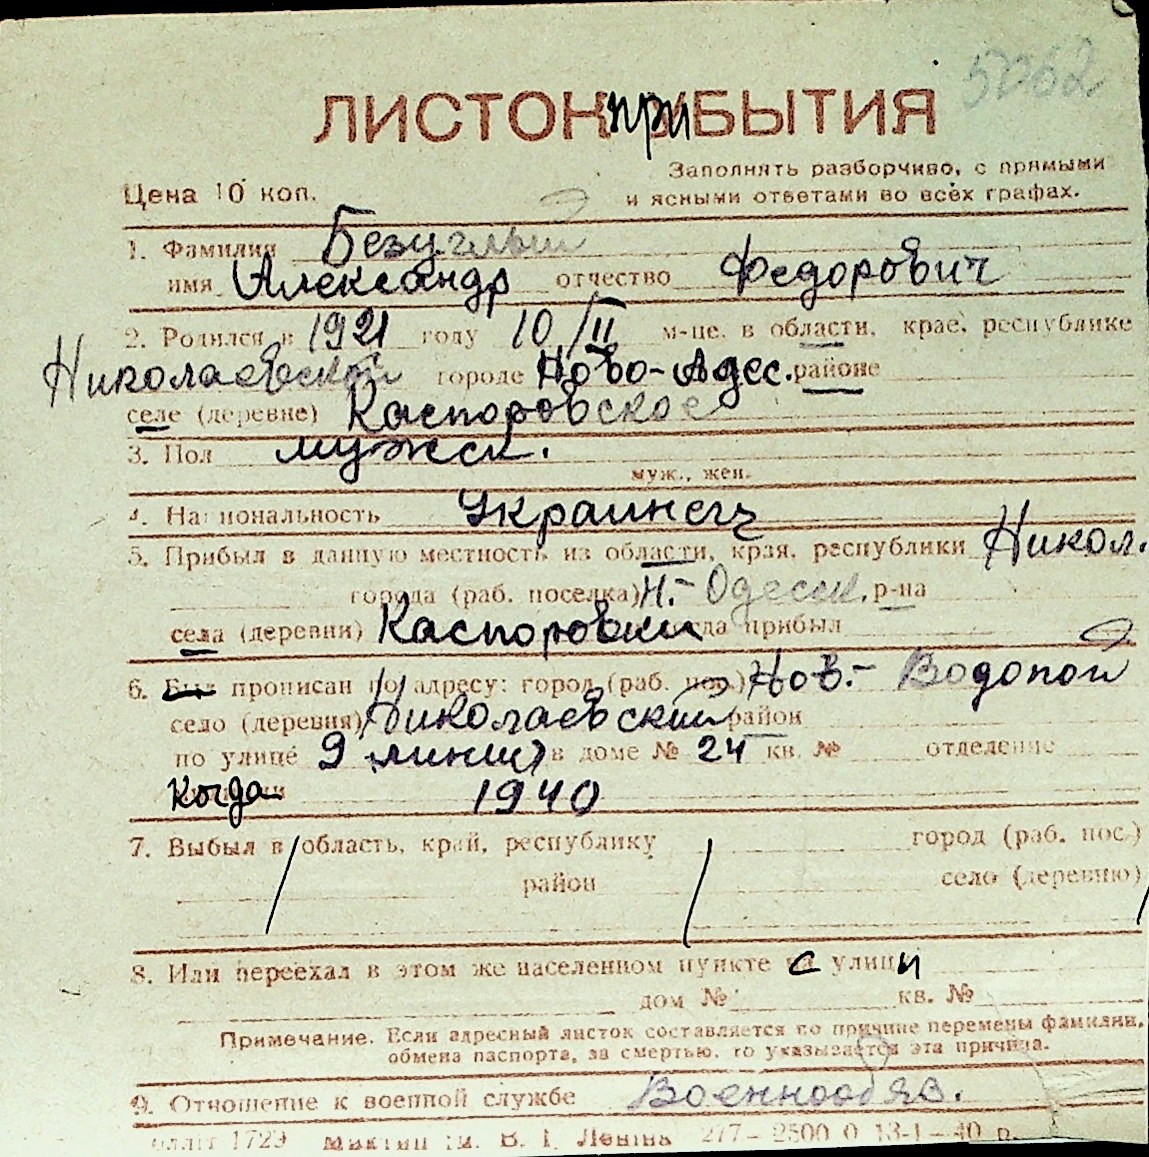 5062
ЛИСТОК при БЫТИЯ
Заполнять разборчиво, с прямыми
Цена 10 коп.
и ясными ответами во всех графах.
1. Фамилия Безуглый
имя Александр отчество Федорович
2. Родился в 1921 году 10/II м-це, в области, крае, республике
Николаевской городе Ново-Адес. районе
селе (деревне) Каспоровское
3. Пол мужск.
муж., жен.
4. Национальность Украинец
5. Прибыл в данную местность из области, края, республики Никол.
города (раб. поселка) Н.-Одесск. р-на
села (деревни) Каспоровки когда прибыл
6. Был прописан по адресу: город (раб. пос.) Нов.- Водопой
село (деревня) Николаевский район
по улице 9 линия в доме № 24 кв. № отделение
Когда 1940
7. Выбыл в область, край, республику город (раб. пос.)
район село (деревню)
8. Или переехал в этом же населенном пункте с улици
дом № кв. №
Примечание. Если адресный листок составляется по причине перемены фамилии,
обмена паспорта, за смертью, то указывается эта причина.
9. Отношение к военной службе Военнообяз.
1729 ім. В. І. Леніна 277—2500 0 13-1—40 р.